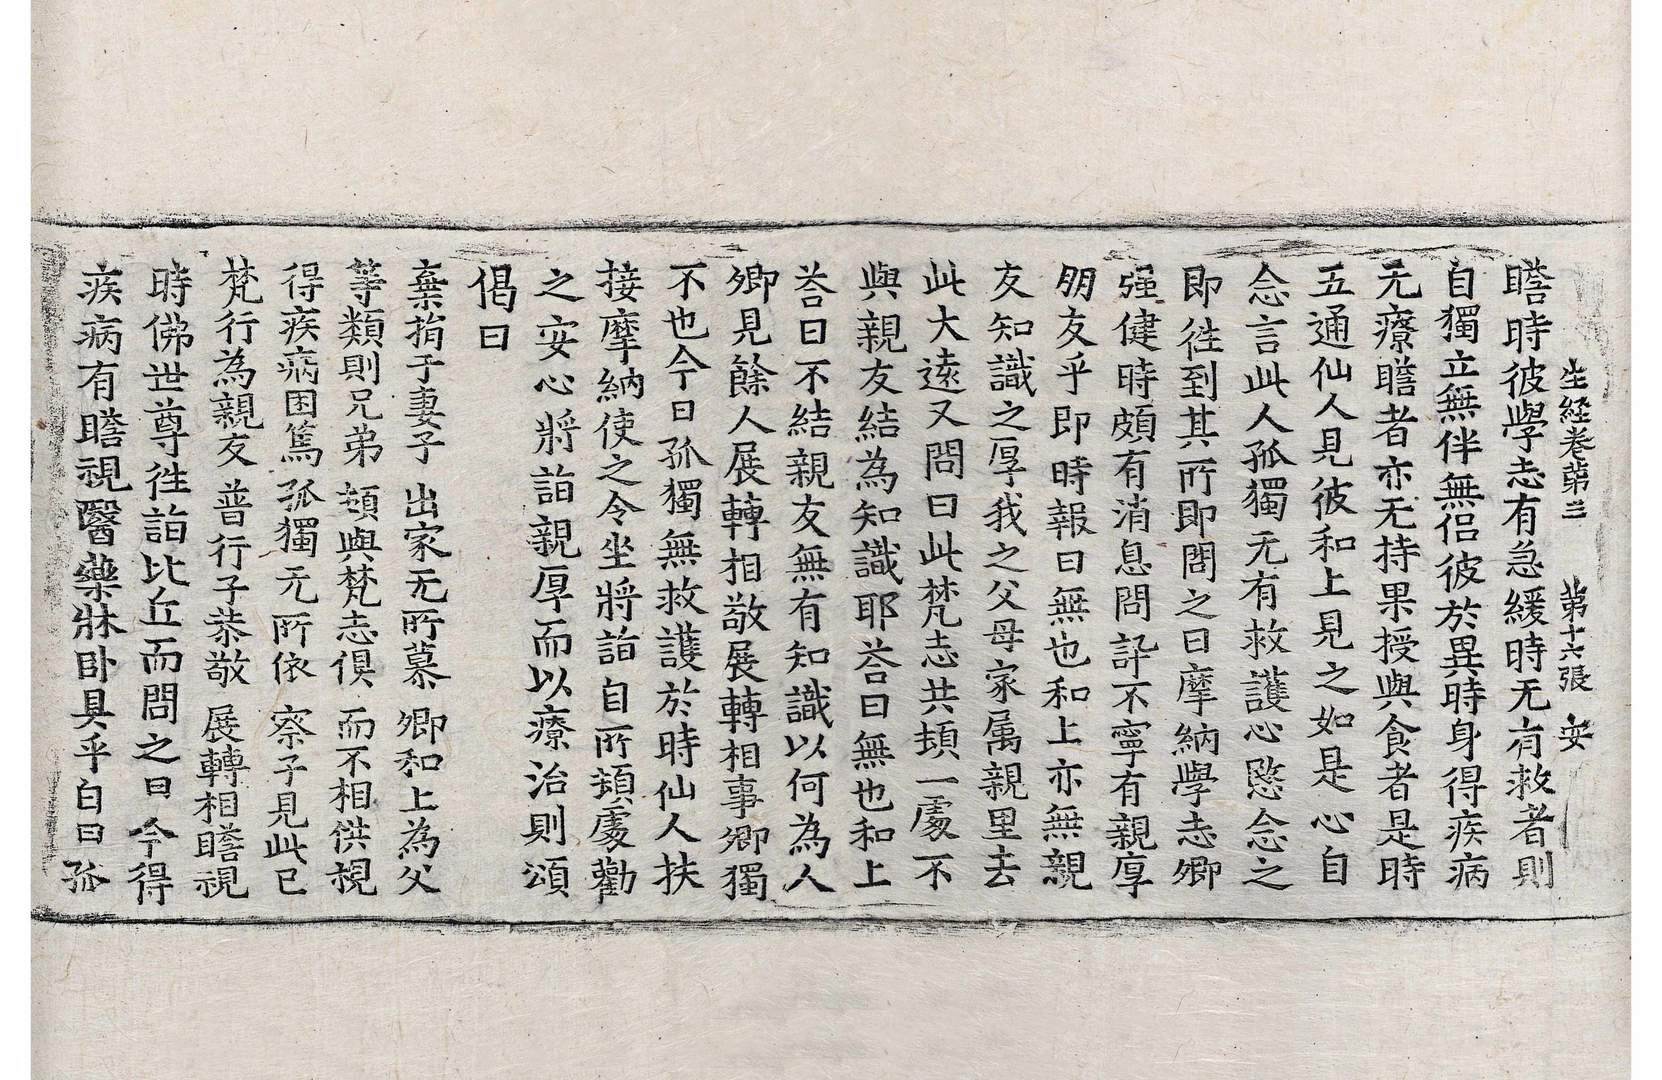 生経巻第三　第十六張　安
瞻時彼學志有急緩時无有救者則
自獨立無伴無侣彼於異時身得疾病
无療瞻者亦无持果授與食者是時
五通仙人見彼和上見之如是心自
念言此人孤獨无有救護心愍念之
即徃到其所即問之曰摩納學志卿
强健時頗有消息問訊不寧有親厚
朋友乎即時報曰無也和上亦無親
友知識之厚我之父母家属親里去
此大遠又問曰此梵志共頓一處不
與親友結為知識耶荅曰無也和上
荅曰不結親友無有知識以何為人
卿見餘人展轉相敬展轉相事卿獨
不也今日孤獨無救護於時仙人扶
接摩納使之令坐將詣自所頓處勸
之安心將詣親厚而以療治則頌
偈曰
棄捐于妻子　出家无所慕　卿和上為父
等類則兄弟　頓與梵志俱　而不相供視
得疾病困篤　孤獨无所依　察子見此已
梵行為親友　普行子恭敬　展轉相瞻視
時佛世尊徃詣比丘而問之曰今得
疾病有瞻視醫藥牀卧具乎白曰孤